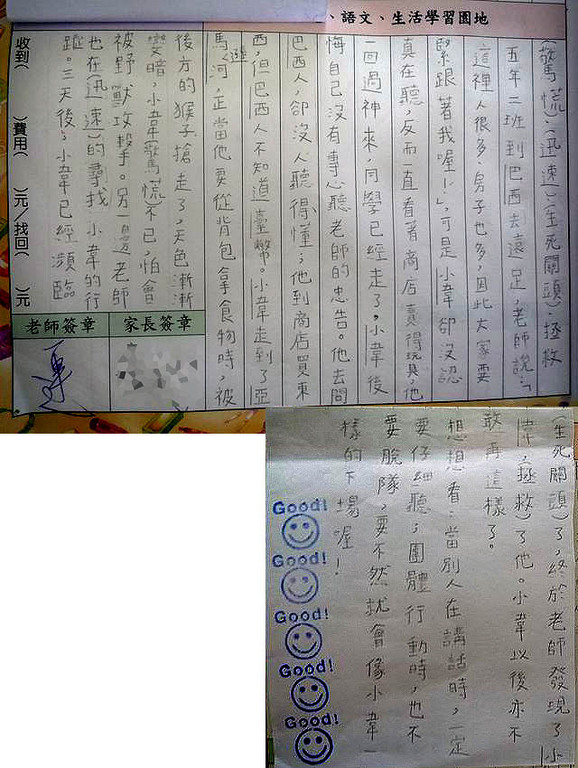 、語文、生活學習園地
(驚慌)(迅速)(生死關頭)、拯救
五年二班到巴西去遠足,老師說:「
這裡人很多、房子也多,因此大家要
緊跟著我喔!」,可是小韋卻沒認
真在聽,反而一直看著商店賣得玩具,他
一回過神來,同學已經走了。小韋後
悔自己沒有專心聽老師的忠告。他去問
巴西人,卻沒人聽得懂;他到商店買東
西,但巴西人不知道臺幣。小韋走到了亞
馬遜河,正當他要從背包拿食物時,被
後方的猴子搶走了,天色漸漸
變暗,小韋(驚慌)不已,怕會
被野獸攻擊。另一邊老師
也在(迅速)的尋找小韋的行
蹤。三天後,小韋已經瀕臨
收到( )費用( )元/找回( )元
老師簽章 家長簽章
(生死關頭)了,終於老師發現了小
韋,(拯救)了他。小韋以後亦不
敢再這樣了。
想想看:當別人在講話時,一定
要仔細聽;團體行動時,也不
要脫隊,要不然就會像小韋一
樣的下場喔!
Good!
Good!
Good!
Good!
Good!